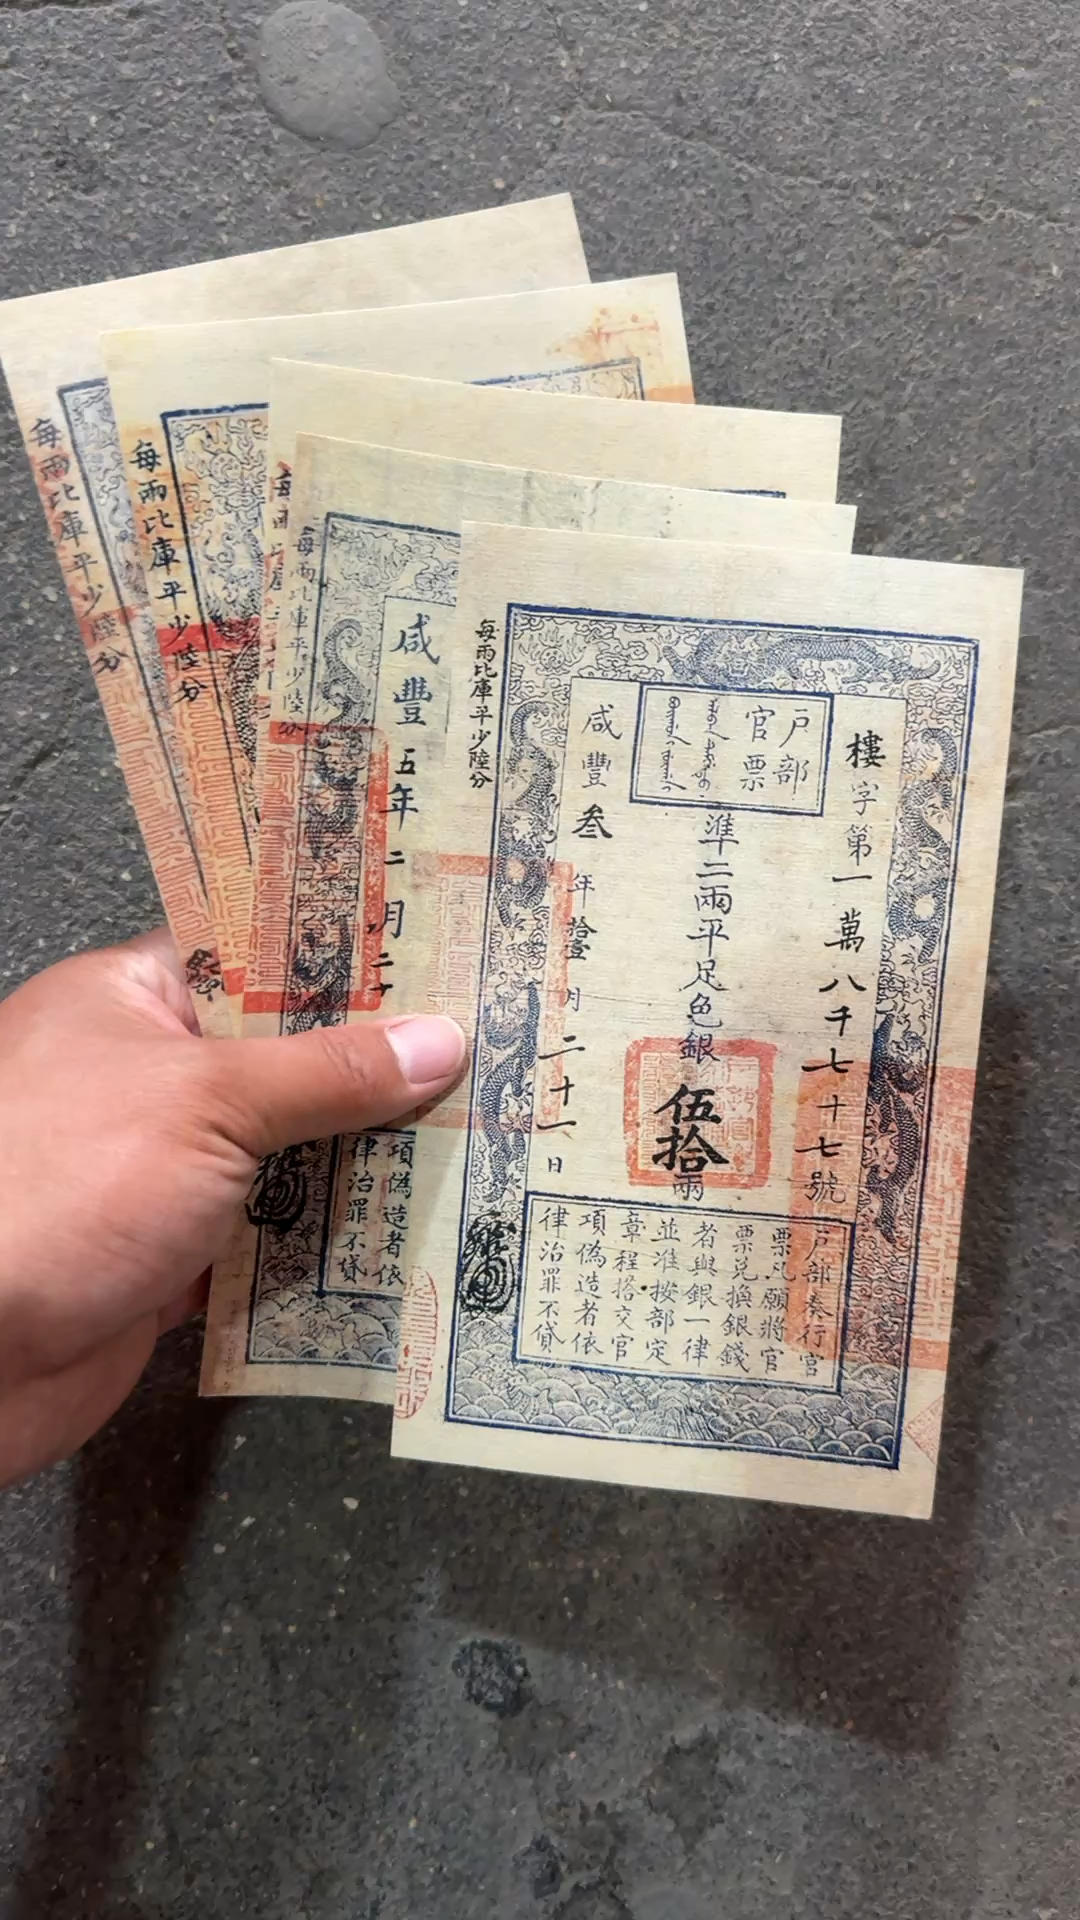 每兩比庫平少陸分
每兩比庫平少陸分
每兩比庫平少陸分
咸豐五年二月二十
項偽造者依
律治罪不貸
戶部
官票
樓字第一萬八千七十七號
準二兩平足色銀伍拾兩
咸豐叁年拾壹月二十一日
每兩比庫平少陸分
戶部奏行官
票凡願將官
票兌換銀錢
者與銀一律
並准按部定
章程搭交官
項偽造者依
律治罪不貸